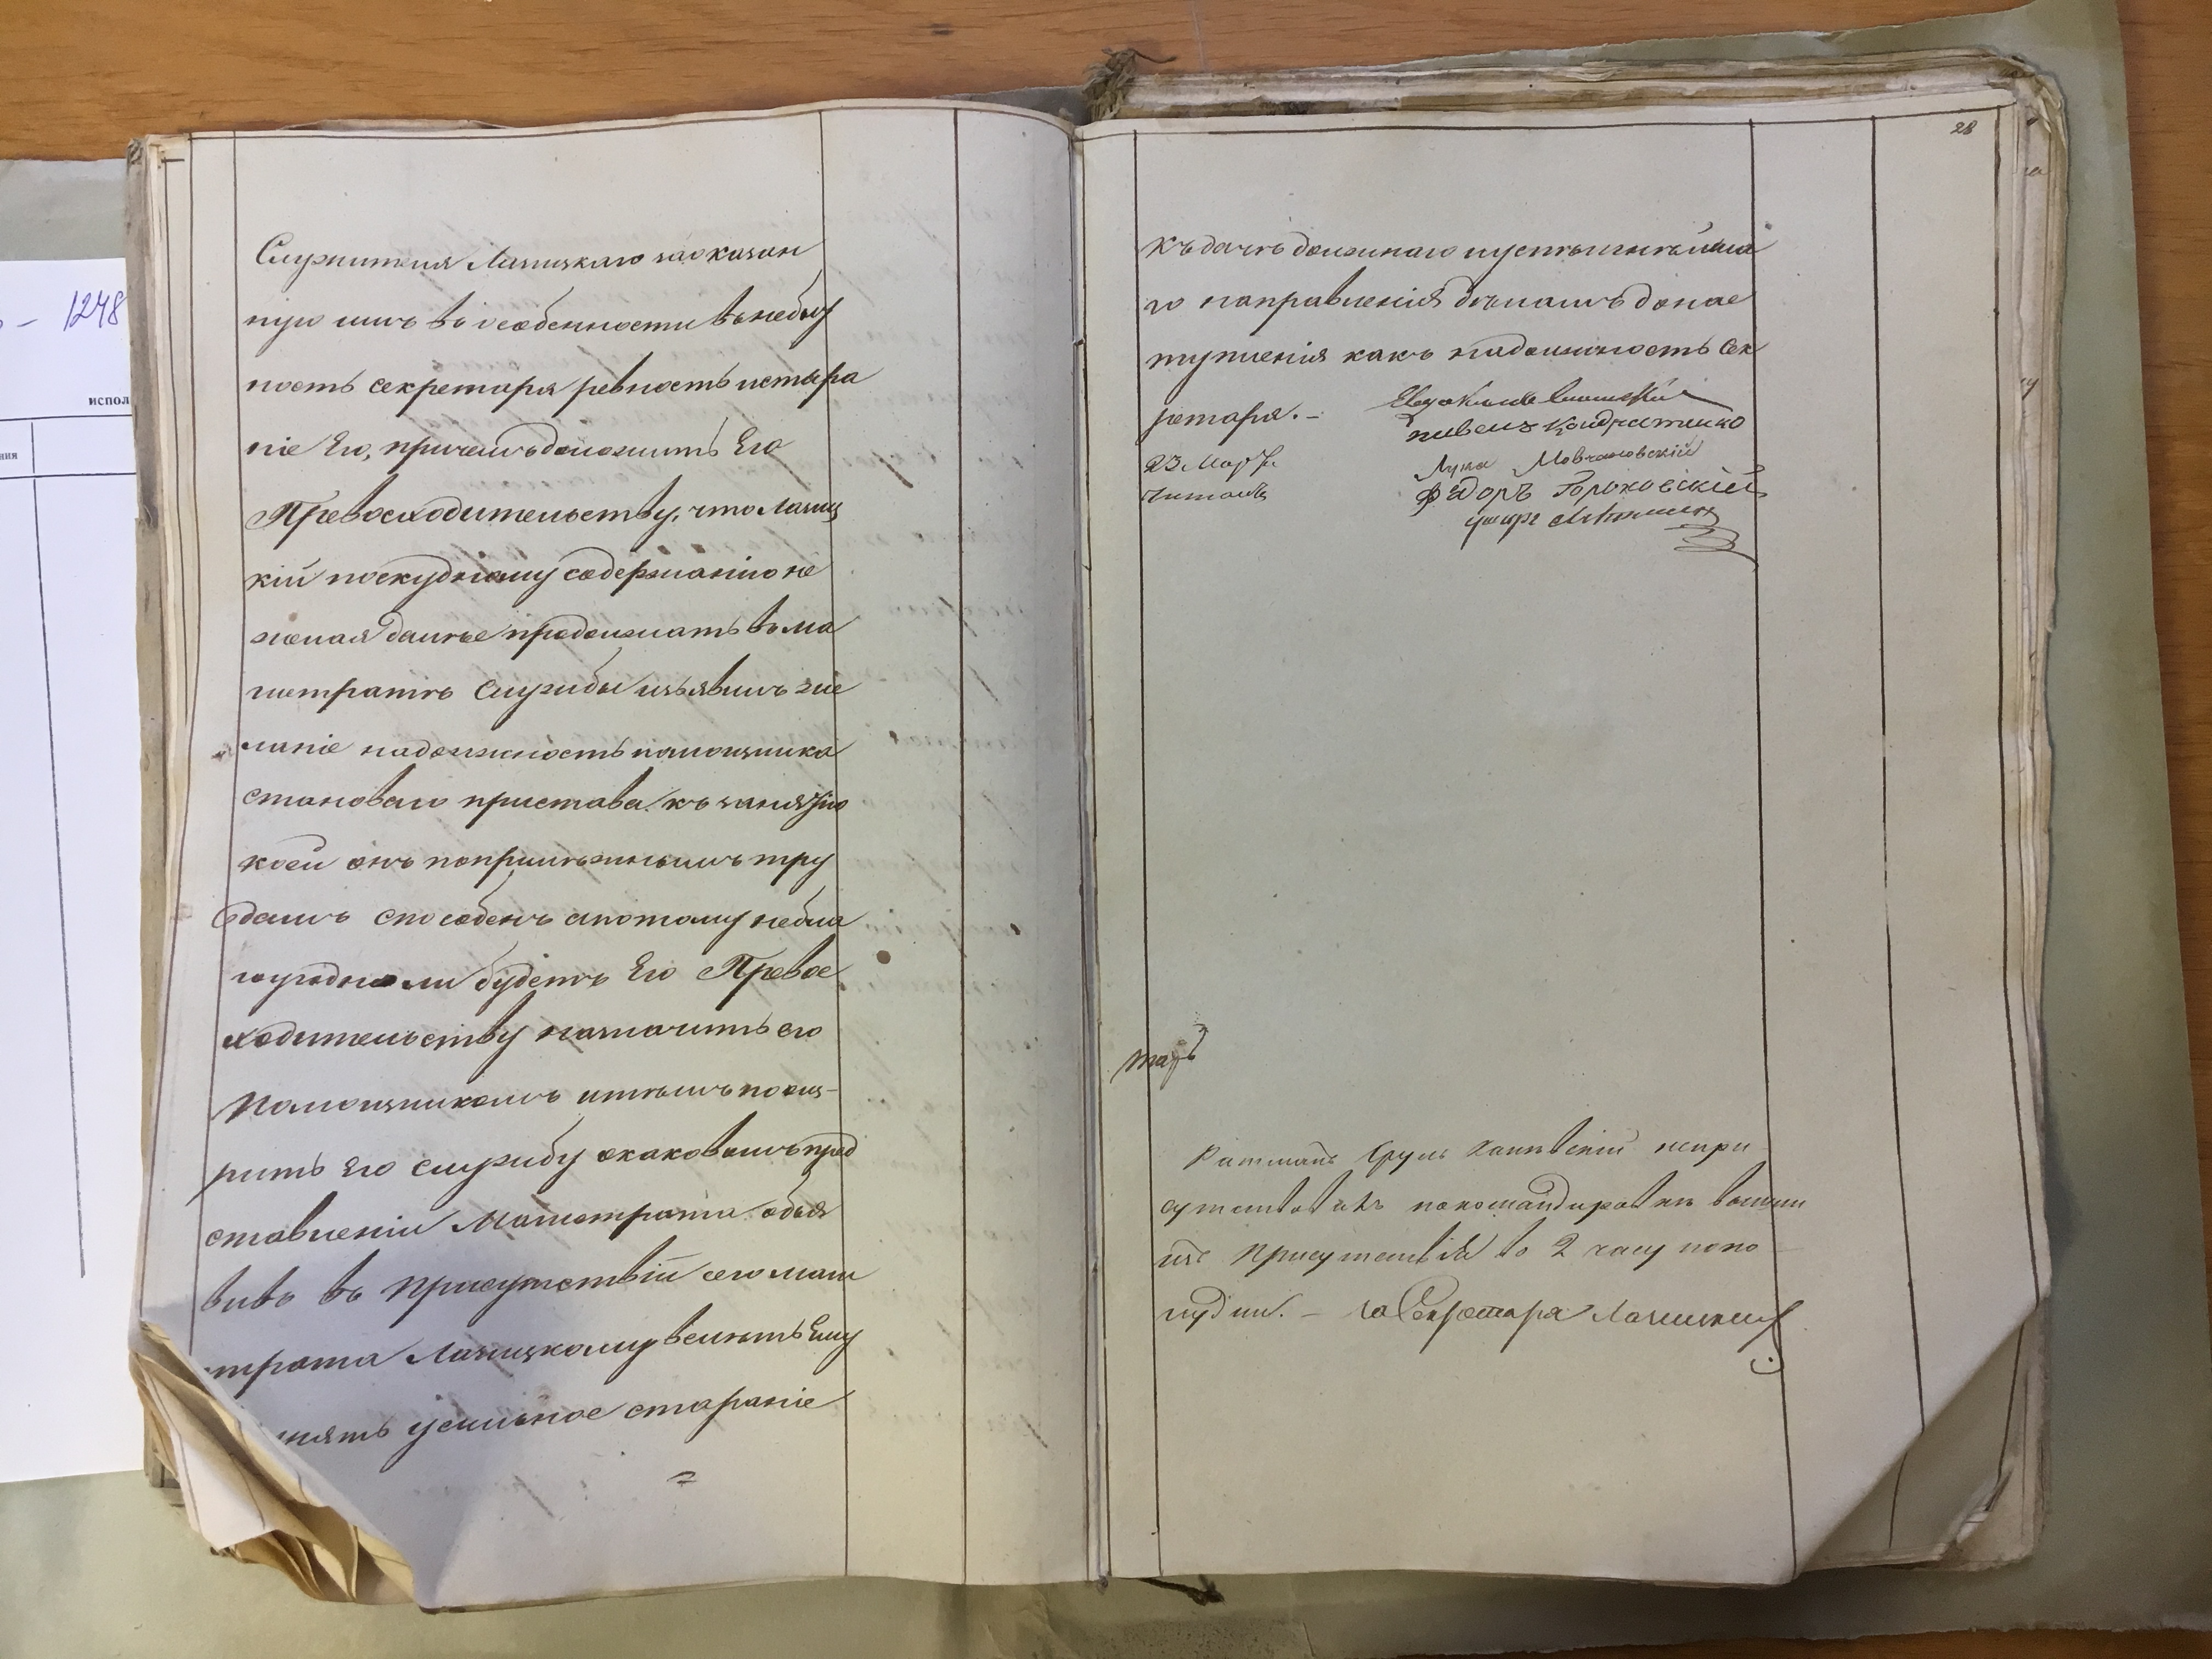 1248
испол
ния
Служителя Лазицкаго заоказан
ную имъ въ особенности въ небыт
ность секретаря ревность истара
ніе Его, причемъ доложить Его
Превосходительству, что Лазиц
кій поскудному содержанію не
желая далѣе продолжать въ ма
гистратѣ службы изъявилъ же
ланіе надолжность помощника
становаго пристава къ занятію
коей онъ поприлѣжнымъ тру
дамъ способенъ апотому небла
гоугодно ли будетъ Его Превос
ходительству назначить его
Помощникомъ итѣмъ поощ-
рить Его службу окаковомъ пред
ставленіи Магистрата объя
вивъ въ присутствіи сего маги
страта Лазицкому велѣть Ему
усильное стараніе
28
къ дачѣ должнаго
го направленія дѣламъ допос
тупленія какъ надолжность сек
ретаря. –
Кондратенко
23 Марта
Лука Мовчановскій
Читалъ
Федоръ Гороховскій
Ратманъ Сруль непри
сутствовалъ покомандировкѣ вышли
изъ присутствія во 2 часу попо
лудни. – за Секретаря Лазицкій